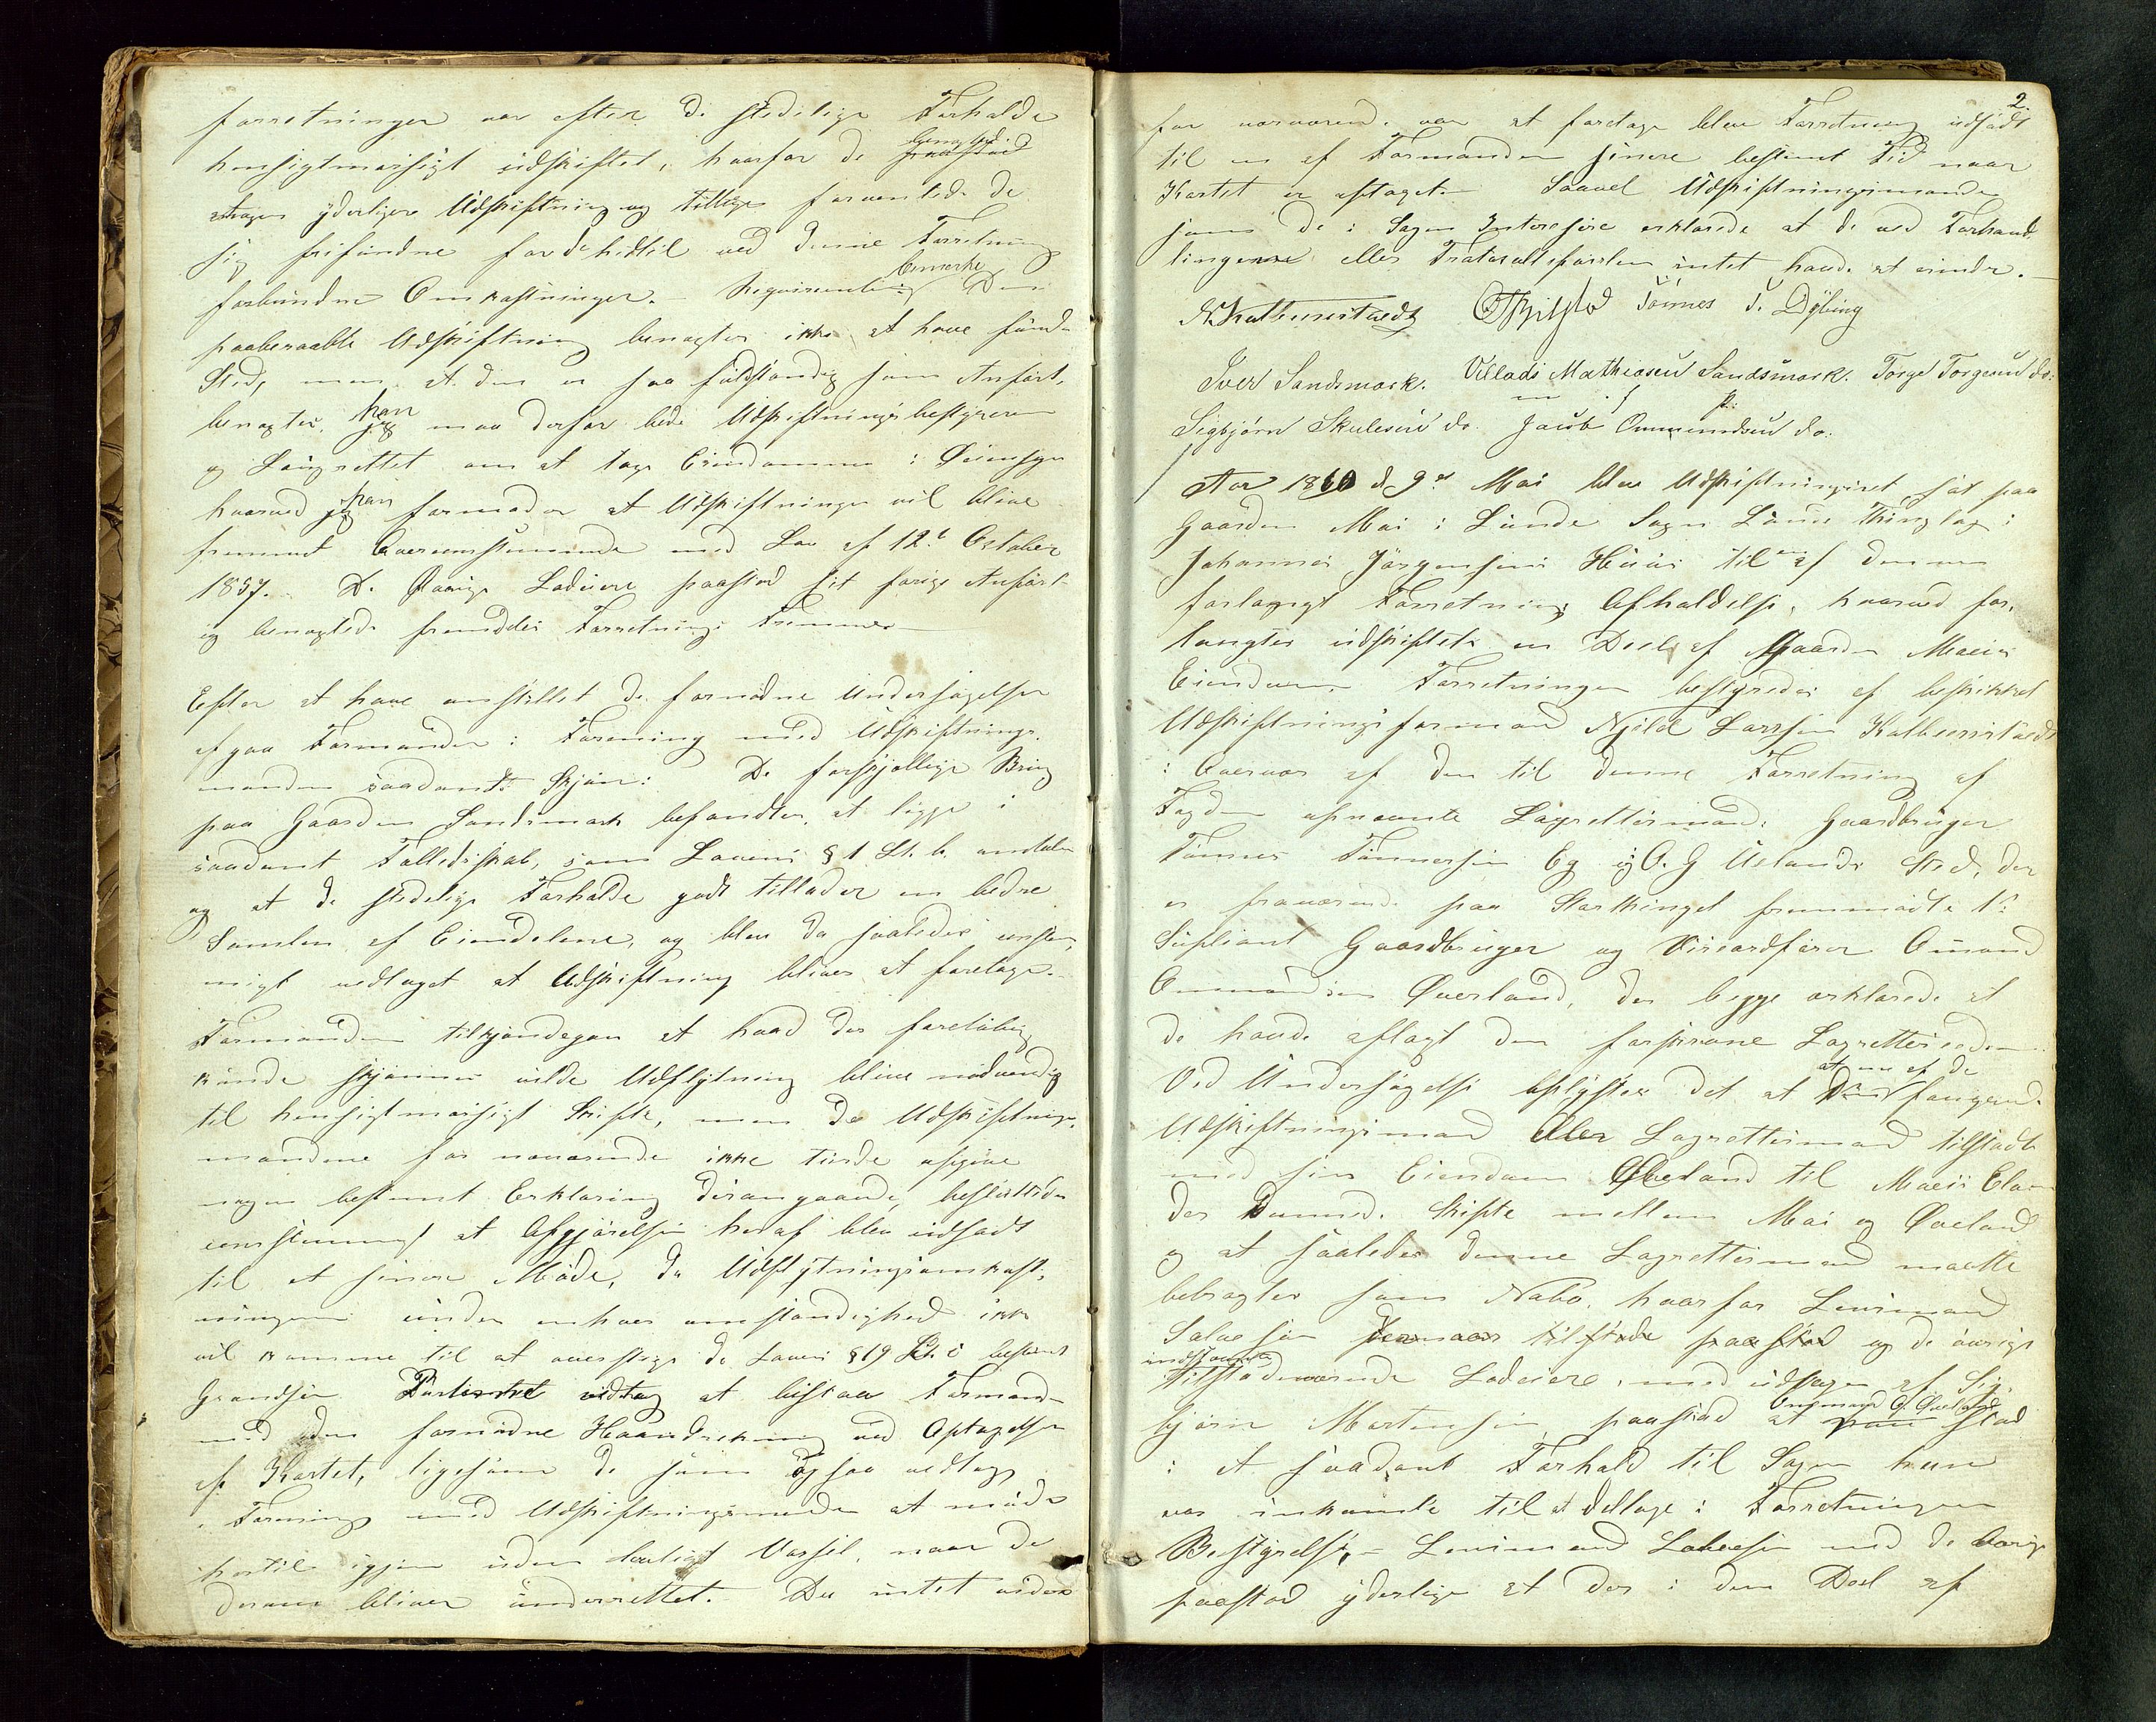 forretninger var efter de stedelige Forholde
hensigtmæsigt udskiftet, hvorfor de benegtede
nogen yderligere Udskiftning og tillige formente de
sig frifundne for de hidtil ved denne Forretning
forbundne Omkostninger. Requirenten bemærke Den
paaberaabte Udskiftning benegtes ikke at have fundet
Sted, men at den er saa fuldstændig som Anført,
benegtes, han maa derfor bede Udskiftningsbestyreren
og Laugrettet om at tage Eiendommen i Øiensyn
hvorved han formoder at Udskiftningen vil blive
fremmet Overensstemmende med Lov af 12te October
1857. De Øvrige Lodeiere paastod sit forige Anført
og benegtede fremdeles Forretnings Fremme
Efter at have anstillet de fornødne Undersøgelser
afgaa Formanden i Forening med Udskiftnings
mændene saadant Skjøn: De forskjellige Brug
paa Gaarden Sandsmark befandtes at ligge i
saadant Fælledsskab, som Lovens § 1 Lit. b. omtaler
og at de stedelige Forholde godt tillader en bedre
Samlen af Eiendelene, og blev da saaledes eenstem,
migt vedtaget at Udskiftning bliver at foretage.
Formanden tilkjendegav at hvad der foreløbig
kunde skjønnes vilde Udflytning blive nødvendig
til hensigtmæsigt Skifte, men da Udskiftnings,
mændene for nærværende ikke turde afgive
nogen bestemt Erklæring desangaaende, besluttedes
eenstemmigt at Afgjørelsen heraf blev udsadt
til et senere Møde, da Udflytningsomkost,
ningerne under enhver omstændighed ikke
vil komme til at overstige de Lovens § 19 Lit. c bestemt
Grændser. Partierne vedtog at bistaa Formanden
med den fornødne Haandrækning ved Optagelsen
af Kartet, ligesom de som ogsaa vedtog
i Forening med Udskiftningsmændene at møde
hertil igjen uden lovligt Varsel, naar de
derom bliver underrettet. Da intet videre
2.
for nærværende var at foretage blev Forretning udsadt
til en af Formanden senere bestemt Tid naar
Kartet er aftaget. Saavel Udskiftningsmænden
som de i Sagen Interesere erklærede at de ved Forhand,
lingerne eller Protocoltilførslen intet havde at erindre.
N. Kalhunstædt Tönnes T. Dybing
Iver Sandsmark. Villads Mathiasen Sandsmark. Torge Torgesen do:
Sigbjørn Skulesen do. Jacob Ommundsen do.
Aar 1860 d 9de Mai blev Udskiftningsret sat paa
Gaarden Moi i Lunde Sogn Lunds Thinglag i
Johannes Jörgensens Huus til af denne
forlangt Forretnings Afholdelse, hvorved for,
langtes udskiftet en Deel af Gaarden Moeis
Eiendom. Forretningen bestyredes af beskikket
Udskiftningsformand Njeld Larssen Kalhunstædt
i Overvær af den til denne Forretning af
Fogden opnævnte Lagrettesmænd: Gaardbruger
Tönnes Tönnesen Eg og O. G Ueland Sted, der
er fraværende paa Storthinget fremmødte 1ste
Supliant Gaardbruger og Omund
Ommundsen Øverland, der begge erklærede at
de havde aflagt den forskrevne Lagretteseden
Ved Undersøgelse oplystes det at at en af de fungerende
Udskiftningsmænd eller Lagrettesmænd tilstødte
med sin Eiendom Øveland til Moeis
der Skifte mellem Moi og Øveland
og at saaledes denne Lagrettesmand maatte
betragtes som Nabo, hvorfor Lensmand
Salvesen paastod og de øvrige
tilstædeværende Lodeiere, med undtagen af Sig,
bjørn Mortensen, paastod at Ommund O. Øveland stod
i et saadant Forhold til Sagen han
var inkomte til at deltage i Forretningens
Bestyrelse, = Lensmand Salvesen med de Øvrige
paastod yderlige at der i den Deel af